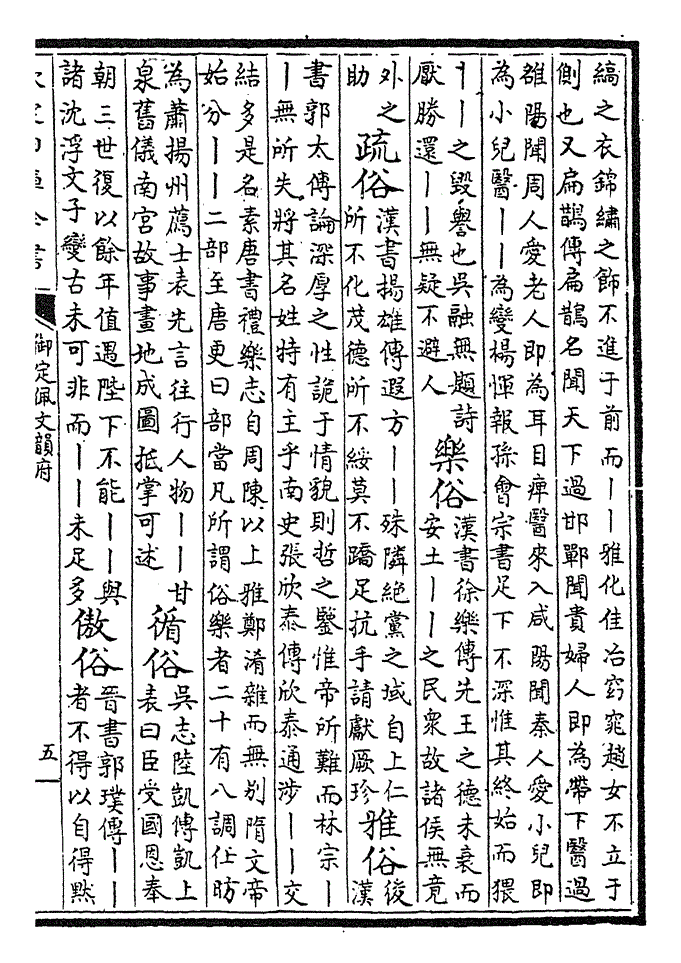 縞之衣錦繡之飾不進于前而丨丨雅化佳冶窈窕趙女不立于
側也又扁鵲傳扁鵲名聞天下過邯鄲聞貴婦人即為帶下醫過
雒陽聞周人愛老人即為耳目痺醫來入咸陽聞秦人愛小兒即
為小兒醫丨丨為變楊惲報孫會宗書足下不深惟其終始而猥
丨丨之毀譽也吳融無題詩
厭勝還丨丨無疑不避人
樂俗
漢書徐樂傳先王之德未衰而
安土丨丨之民衆故諸侯無竟
外之
助
疏俗
漢書揚雄傳遐方丨丨殊隣絶黨之域自上仁
所不化茂德所不綏莫不蹻足抗手請獻厥珍
雅俗
後
漢
書郭太傳論深厚之性詭于情貌則哲之鑒惟帝所難而林宗丨
丨無所失將其名姓特有主乎南史張欣泰傳欣泰通涉丨丨交
結多是名素唐書禮樂志自周陳以上雅鄭淆雜而無别隋文帝
始分丨丨二部至唐更曰部當凡所謂俗樂者二十有八調任昉
為蕭揚州薦士表先言往行人物丨丨甘
泉舊儀南宮故事畫地成圖抵掌可述
循俗
吳志陸凱傳凱上
表曰臣受國恩奉
朝三世復以餘年值遇陛下不能丨丨與
諸沈浮文子變古未可非而丨丨未足多
傲俗
晉書郭璞傳丨丨
者不得以自得黙
欽定四庫全書
御定佩文韻府
五